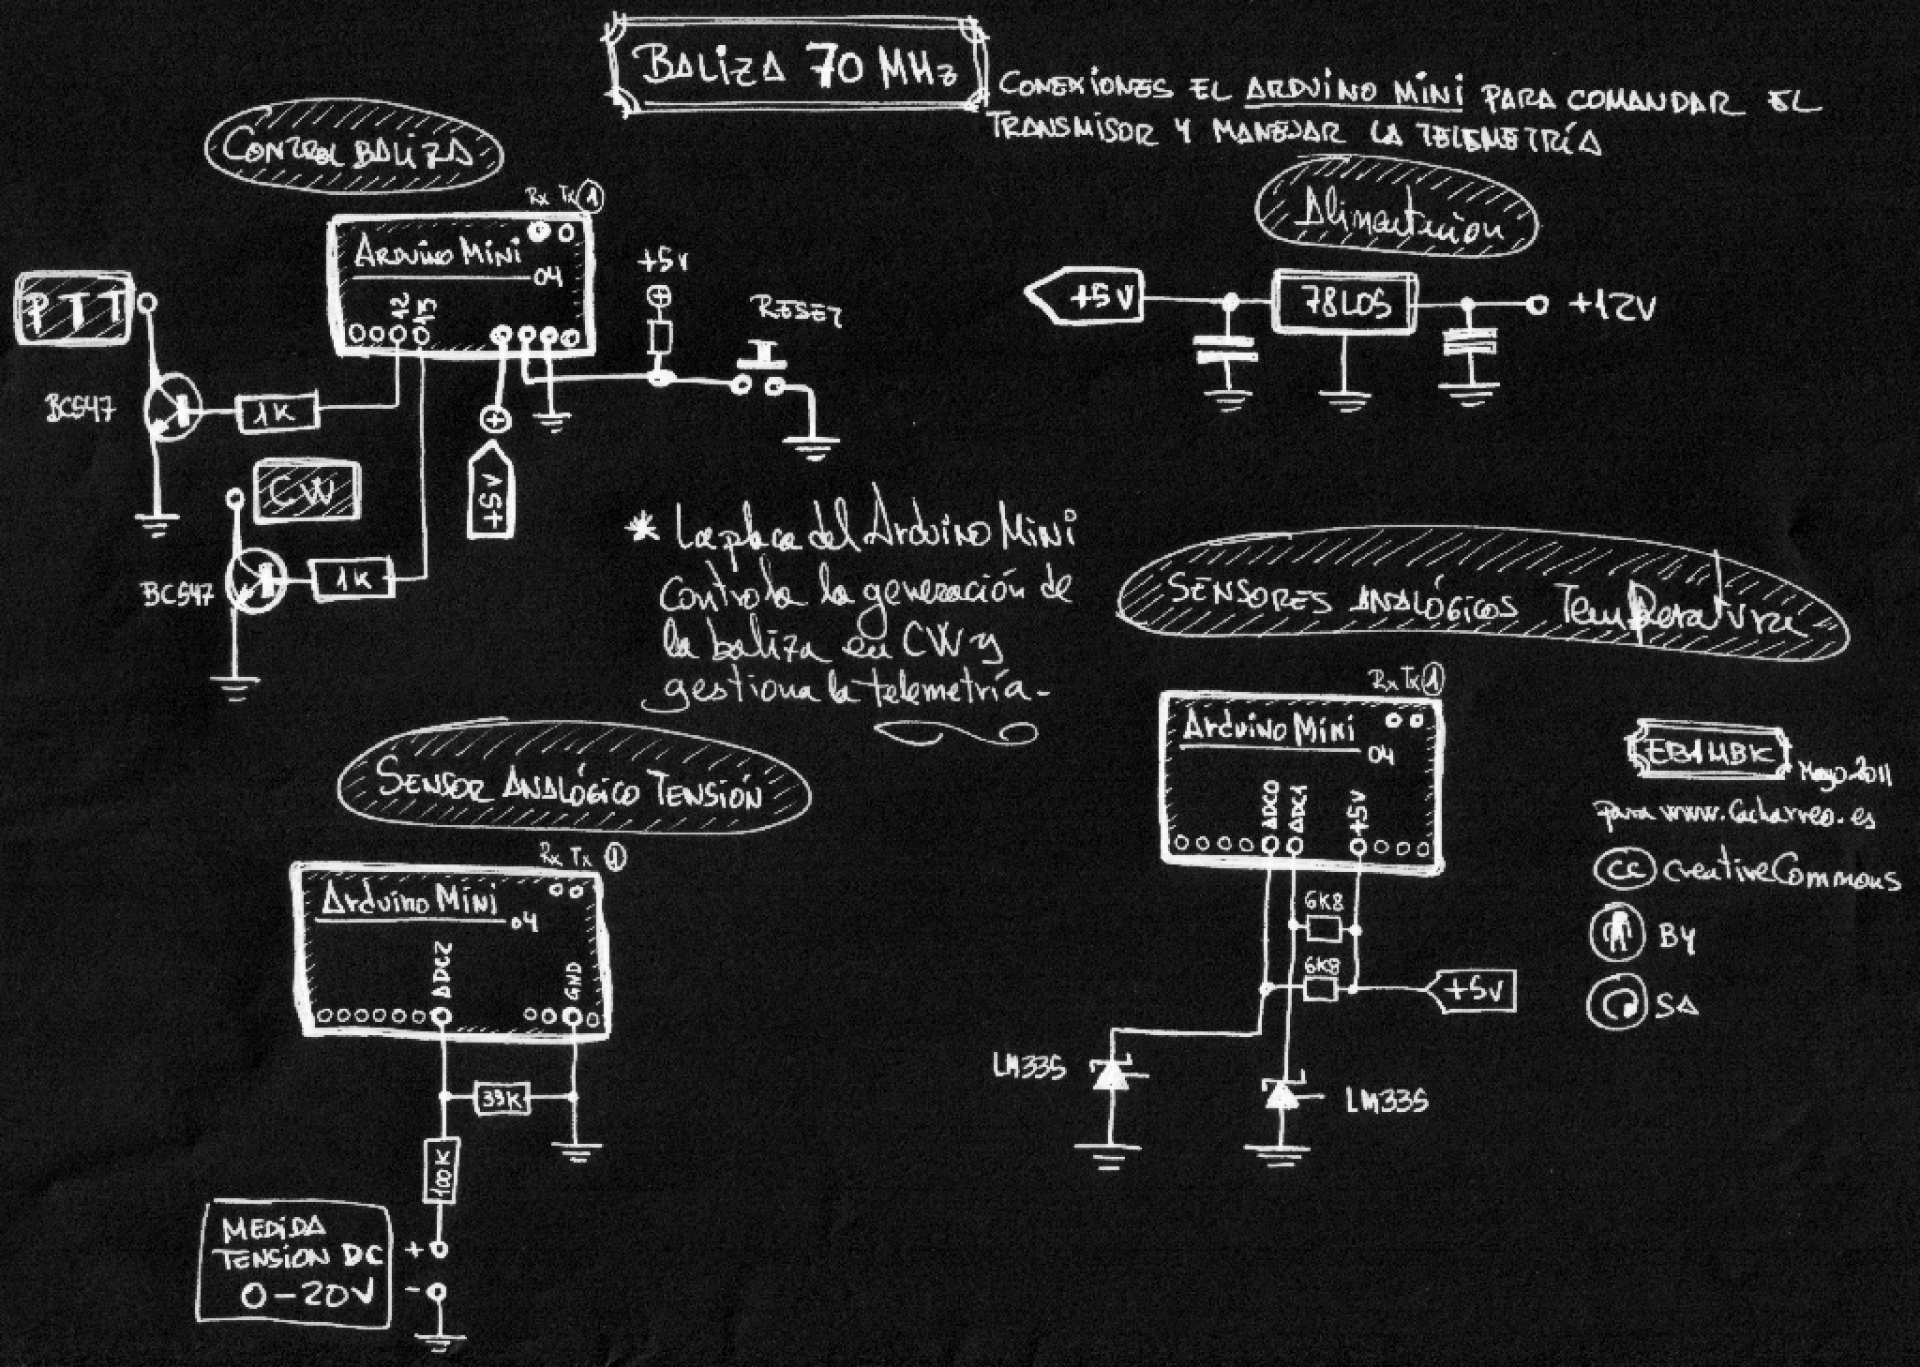 BALIZA 70 MHz
CONEXIONES EL ARDUINO MINI PARA COMANDAR EL
TRANSMISOR Y MANEJAR LA TELEMETRÍA
CONTROL BALIZA
Rx Tx 1
ARDUINO MINI
04
12
13
PTT
BC547
1K
CW
BC547
1K
+5V
+5V
RESET
Alimentación
+5V
78L05
+12V
* La placa del Arduino Mini
controla la generación de
la baliza en CW y
gestiona la telemetría-
SENSORES ANALÓGICOS Temperatura
Rx Tx 1
Arduino Mini
04
ADC0
ADC1
+5V
6K8
6K8
+5V
LM335
LM335
SENSOR ANALÓGICO TENSIÓN
Rx Tx 1
Arduino Mini
04
ADC2
GND
33K
100K
MEDIDA
TENSION DC
0-20V
+
-
Mayo-2011
para www.Cacharreo.es
cc creativeCommons
BY
SA